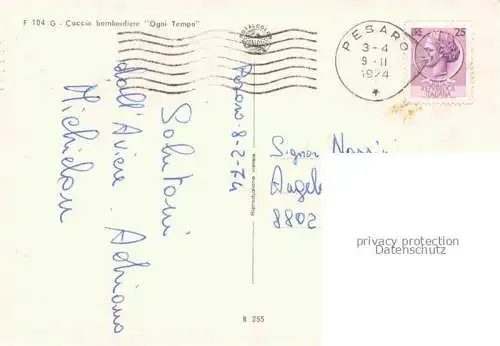 F 104 G - Caccia bombardiere "Ogni Tempo"
Pesaro - 8-2-74
Saluti
dall'Aviere Adriano
PESARO
3-4
9-II
1974
LIRE 25
REPUBBLICA
ITALIANA
Signor
Angel
8802
privacy protection
Datenschutz
Riproduzione vietata
B 255